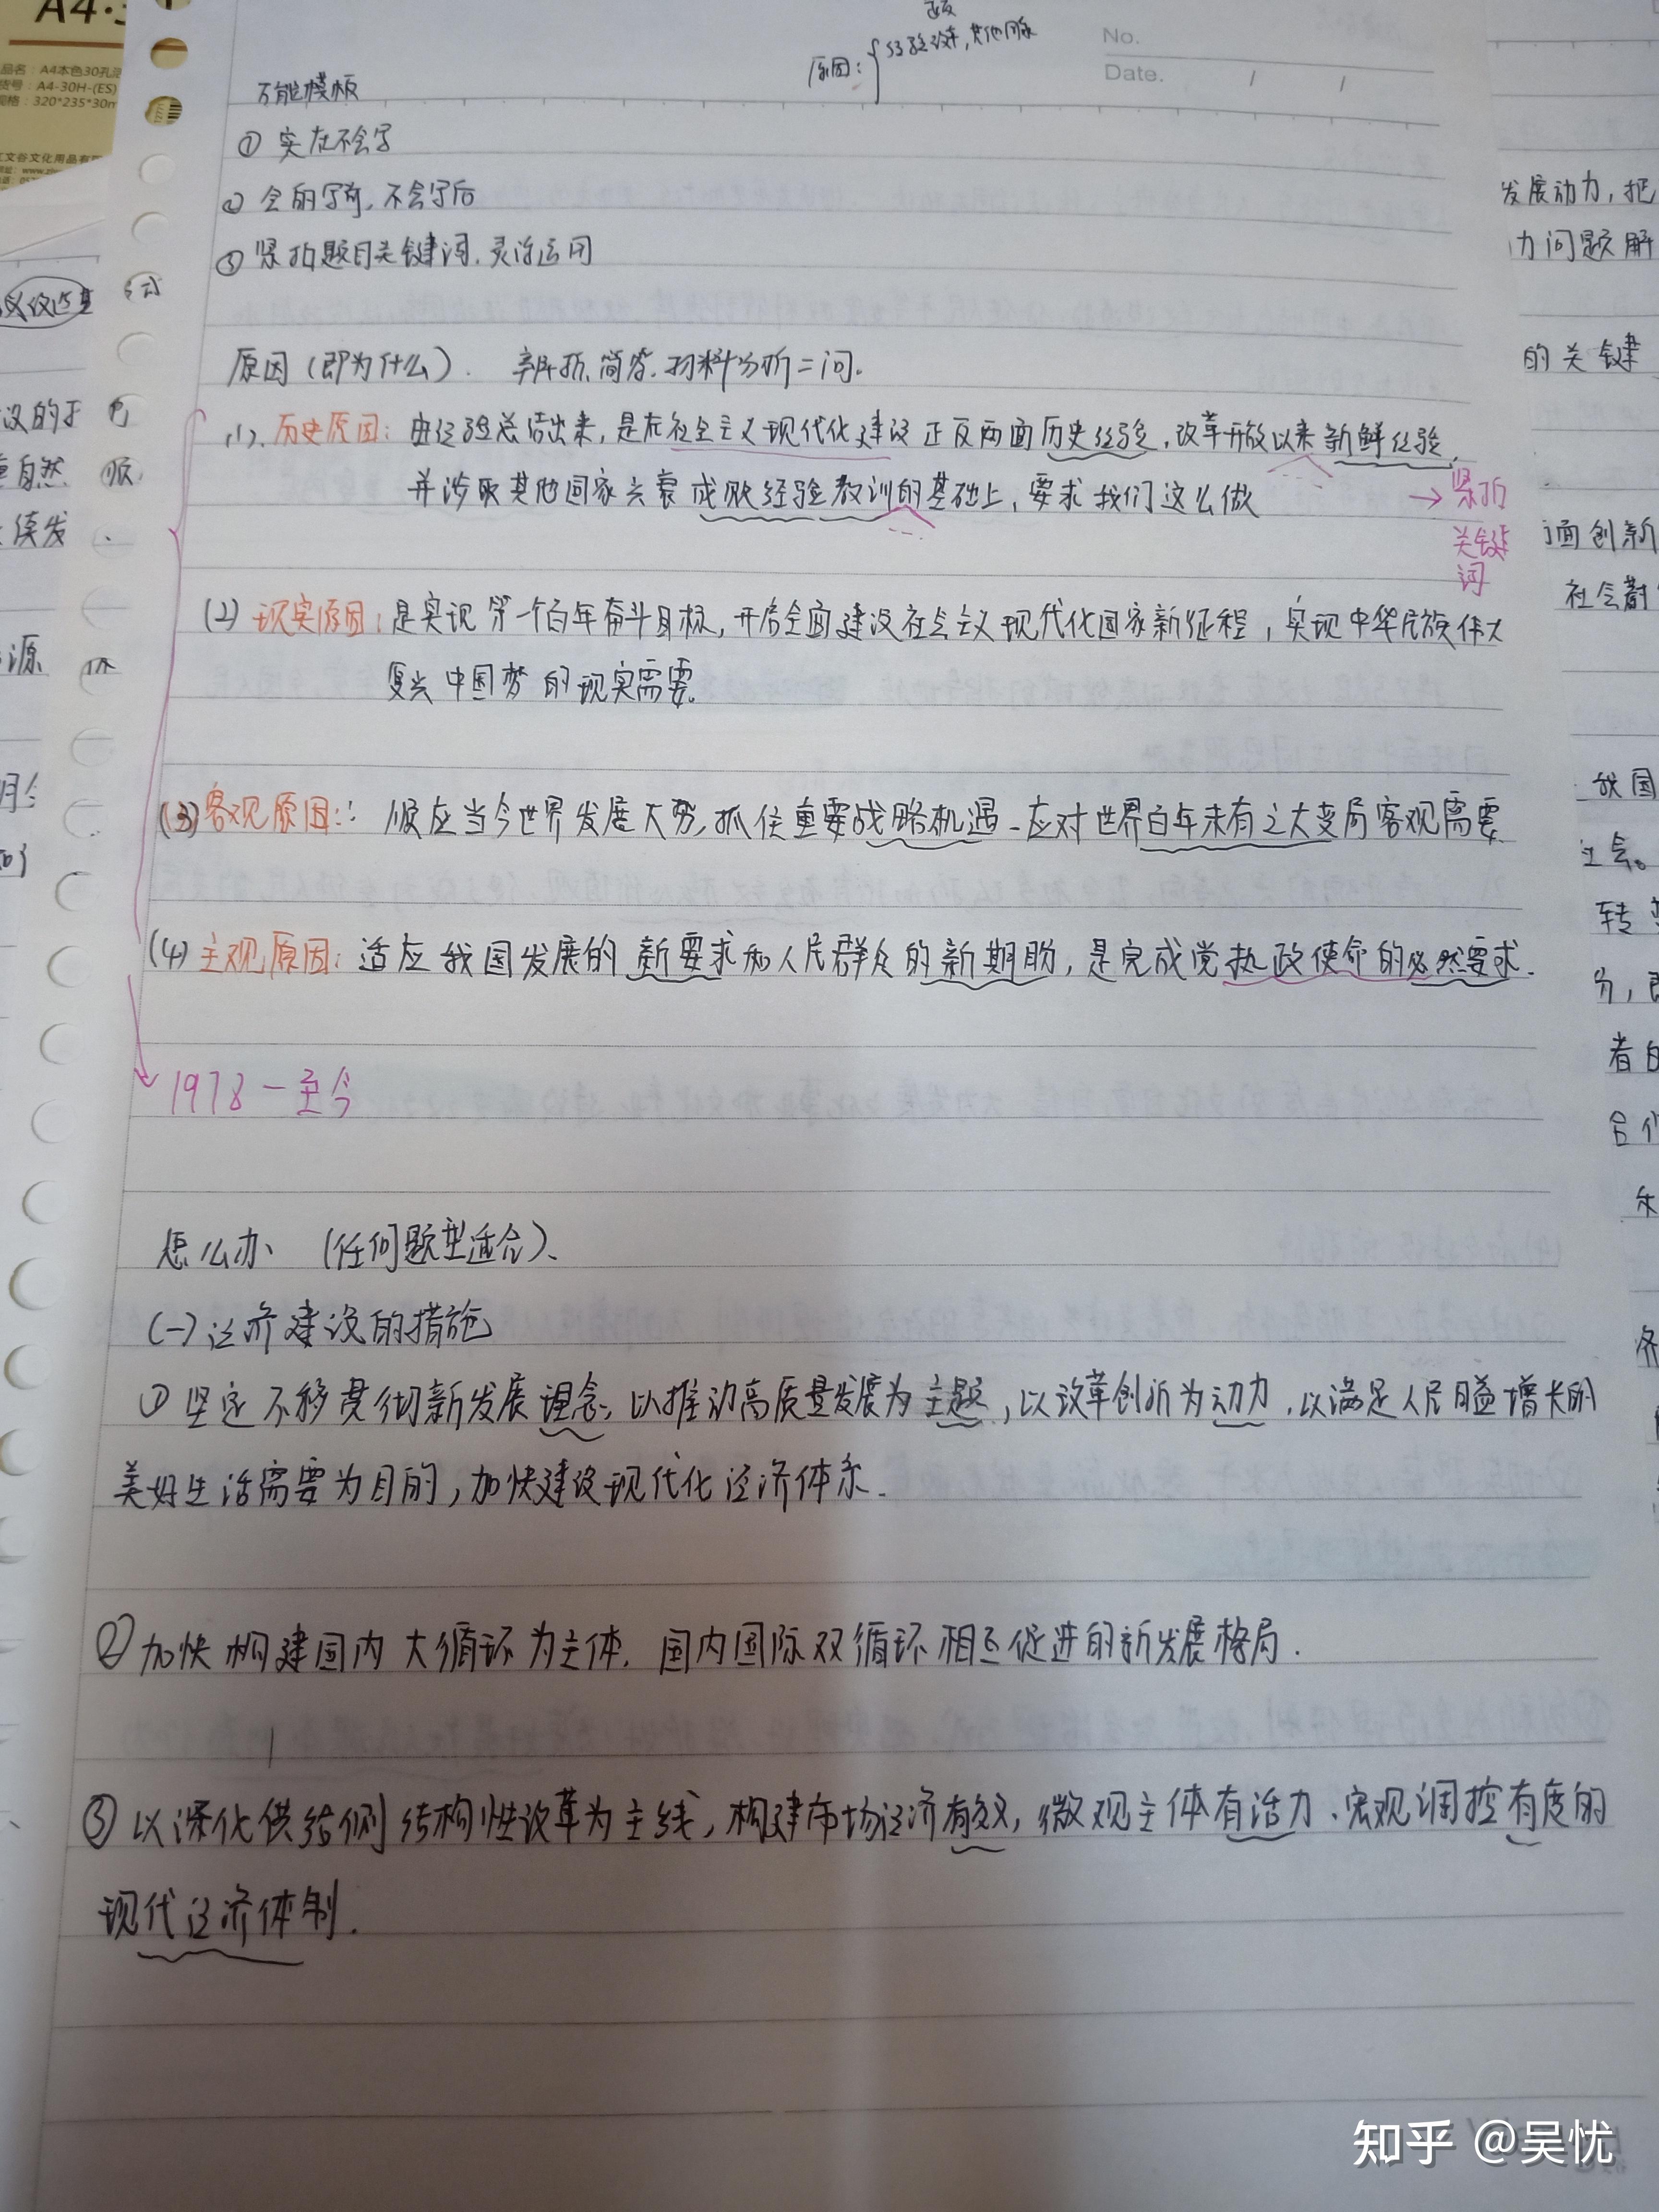 A4
品名：A4本色30孔活
货号：A4-30H-(ES)
规格：320*235*30m
No.
Date. / /
原因：
万能模板
① 实在不会写
② 会的写前，不会写后
③ 紧扣题目关键词，灵活运用
原因（即为什么）． 辨析、简答、材料分析二问．
(1)、历史原因：由经验总结出来，是在社会主义现代化建设正反两面历史经验，改革开放以来新鲜经验，
并涉取其他国家兴衰成败经验教训的基础上，要求我们这么做
→紧扣
关键
词
(2) 现实原因：是实现第一个百年奋斗目标，开启全面建设社会主义现代化国家新征程，实现中华民族伟大
复兴中国梦的现实需要．
(3) 客观原因：顺应当今世界发展大势，抓住重要战略机遇、应对世界百年未有之大变局客观需要
(4) 主观原因：适应我国发展的新要求和人民群众的新期盼，是完成党执政使命的必然要求．
1978－至今
怎么办 （任何题型适合）、
(一) 经济建设的措施
① 坚定不移贯彻新发展理念，以推动高质量发展为主题，以改革创新为动力，以满足人民日益增长的
美好生活需要为目的，加快建设现代化经济体系．
② 加快构建国内大循环为主体．国内国际双循环相互促进的新发展格局．
③ 以深化供给侧结构性改革为主线，构建市场经济有效，微观主体有活力、宏观调控有度的
现代经济体制．
发展动力，把
力问题解
的关键
面创新
社会
我国
社会。
转
者
知乎 @吴忧